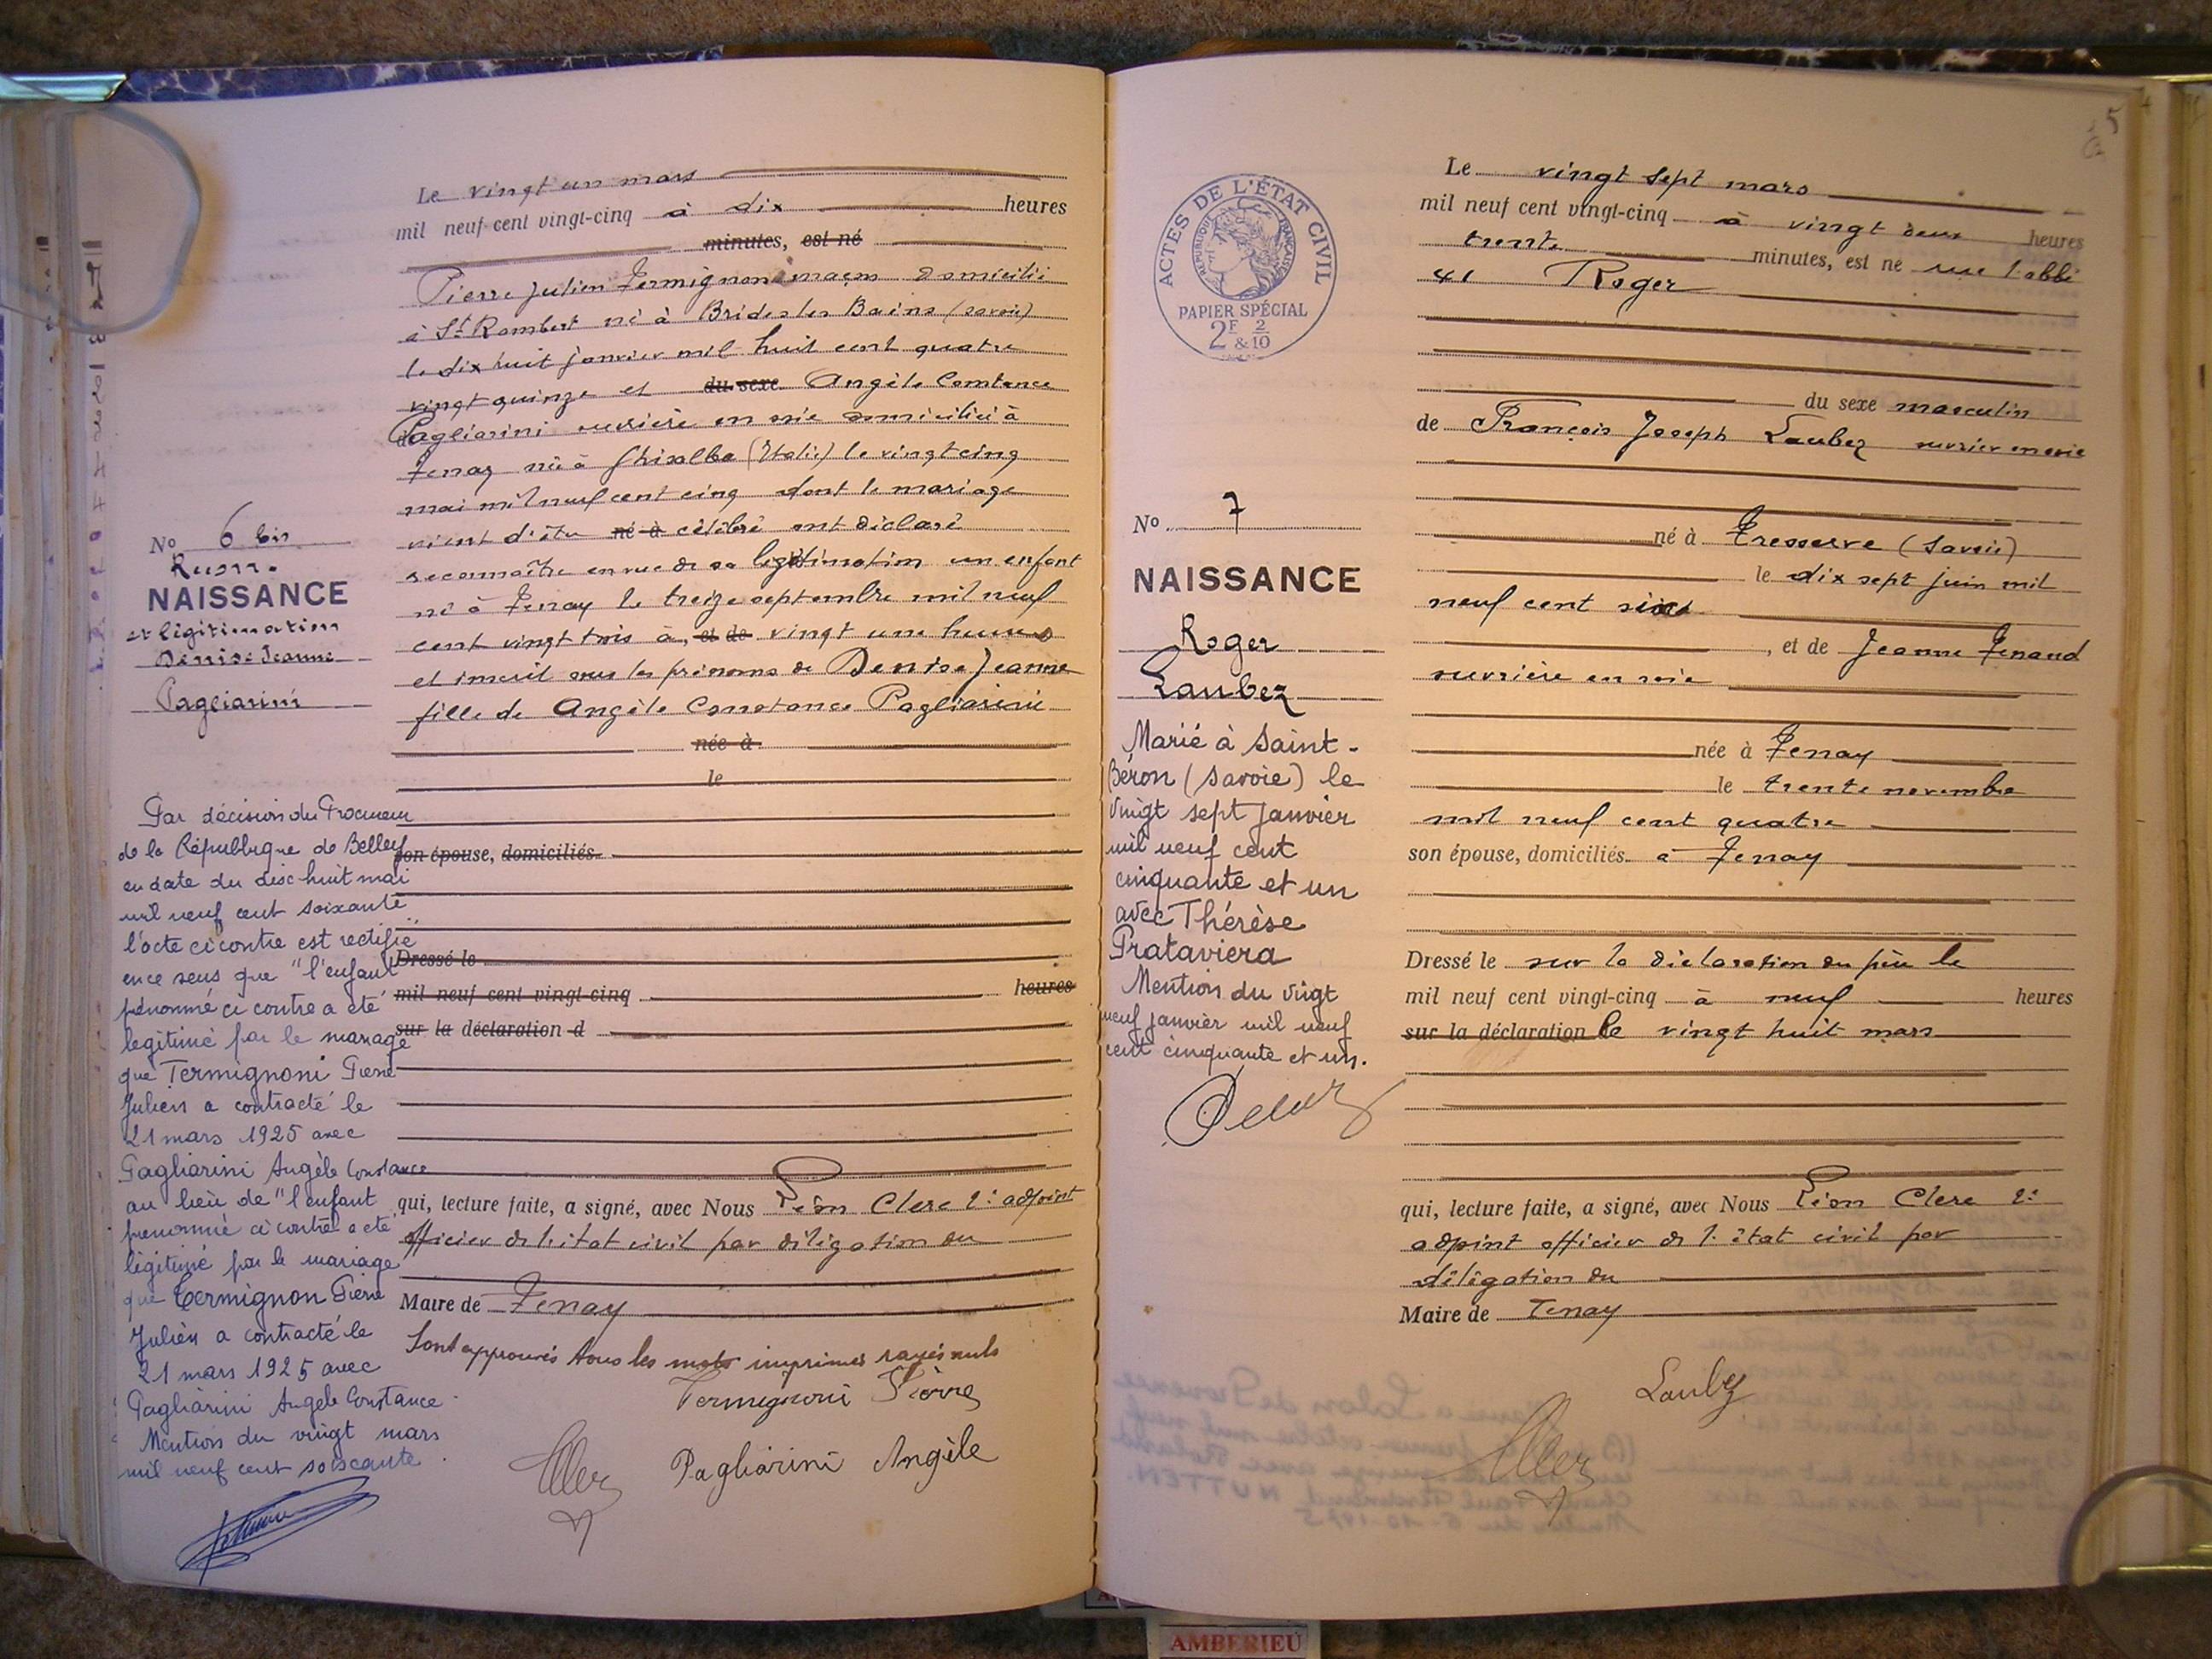 Le vingt un mars
mil neuf cent vingt-cinq à dix heures
minutes, est né
Pierre Julien Termignon maçon domicilié
à St Rambert né à Brides les Bains (Savoie)
le dix huit janvier mil huit cent quatre
vingt quinze et du sexe Angèle Constance
Pagliarini ouvrière en soie domiciliée à
Tenay née à Ghisalba (Italie) le vingt cinq
mai mil neuf cent cinq dont le mariage
vient d'être né à célébré ont déclaré
reconnaître en vue de sa légitimation un enfant
né à Tenay le treize septembre mil neuf
cent vingt trois à, et de vingt une heures
et inscrit sous les prénoms de Denise Jeanne
fille de Angèle Constance Pagliarini
née à
le
son épouse, domiciliés
Dressé le
mil neuf cent vingt-cinq heures
sur la déclaration d
qui, lecture faite, a signé, avec Nous Léon Clerc 2e adjoint
officier de l'état civil par délégation du
Maire de Tenay
Sont approuvés tous les mots imprimés rayés nuls
Termignoni Pierre
Pagliarini Angèle
No 6 bis
Reconn.
NAISSANCE
et légitimation
Denise Jeanne
Pagliarini
Par décision du Procureur
de la République de Belley
en date du dix huit mai
mil neuf cent soixante
l'acte ci contre est rectifié
en ce sens que "l'enfant
prénommé ci contre a été
légitimé par le mariage
que Termignoni Pierre
Julien a contracté le
21 mars 1925 avec
Pagliarini Angèle Constance
au lieu de "l'enfant
prénommé ci contre a été
légitimé par le mariage
que Termignon Pierre
Julien a contracté le
21 mars 1925 avec
Pagliarini Angèle Constance
Mention du vingt mars
mil neuf cent soixante.
5
ACTES DE L'ÉTAT CIVIL
RÉPUBLIQUE FRANÇAISE
PAPIER SPÉCIAL
2F & 2/10
No 7
NAISSANCE
Roger
Laubez
Marié à Saint-
Béron (Savoie) le
vingt sept janvier
mil neuf cent
cinquante et un
avec Thérèse
Prataviera
Mention du vingt
neuf janvier mil neuf
cent cinquante et un.
Le vingt sept mars
mil neuf cent vingt-cinq à vingt deux heures
trente minutes, est né rue l'abbé
Roger
du sexe masculin
de François Joseph Laubez ouvrier en soie
né à Tresserve (Savoie)
le dix sept juin mil
neuf cent six
, et de Jeanne Tenand
ouvrière en soie
née à Tenay
le trente novembre
mil neuf cent quatre
son épouse, domiciliés à Tenay
Dressé le sur la déclaration du père le
mil neuf cent vingt-cinq à neuf heures
sur la déclaration le vingt huit mars
qui, lecture faite, a signé, avec Nous Léon Clerc 2e
adjoint officier de l'état civil par
délégation du
Maire de Tenay
Laubez
AMBERIEU